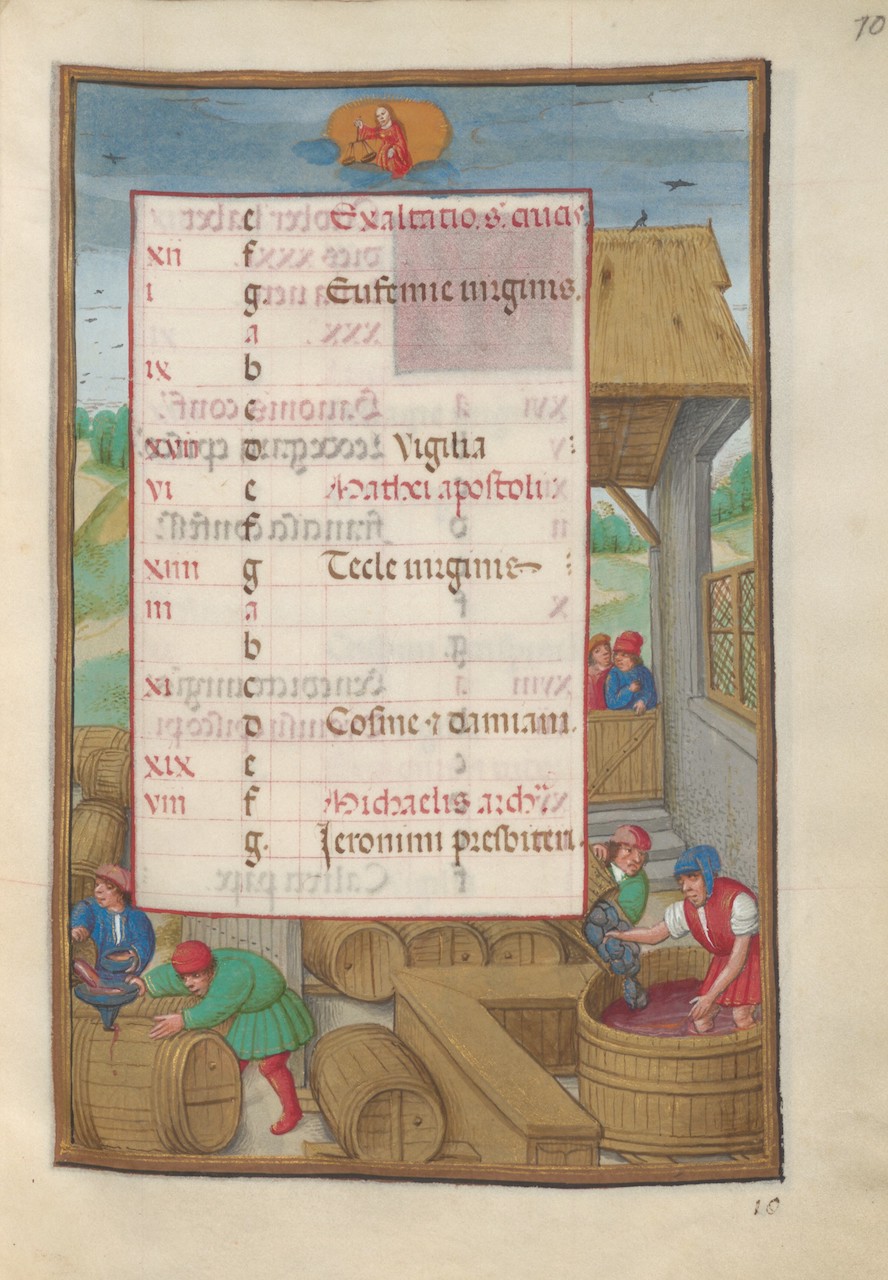 10
e Exaltatio. s. crucis
xii f
i g. Eufemie uirginis.
a
ix b
c
xvii d Vigilia :
vi e Mathei apostoli
f
xiiii g Tecle uirginis :
iii a
b
xi c
d Cosme ⁊ damiani.
xix e
viii f Michaelis arch
g. Jeronimi presbiteri.
10